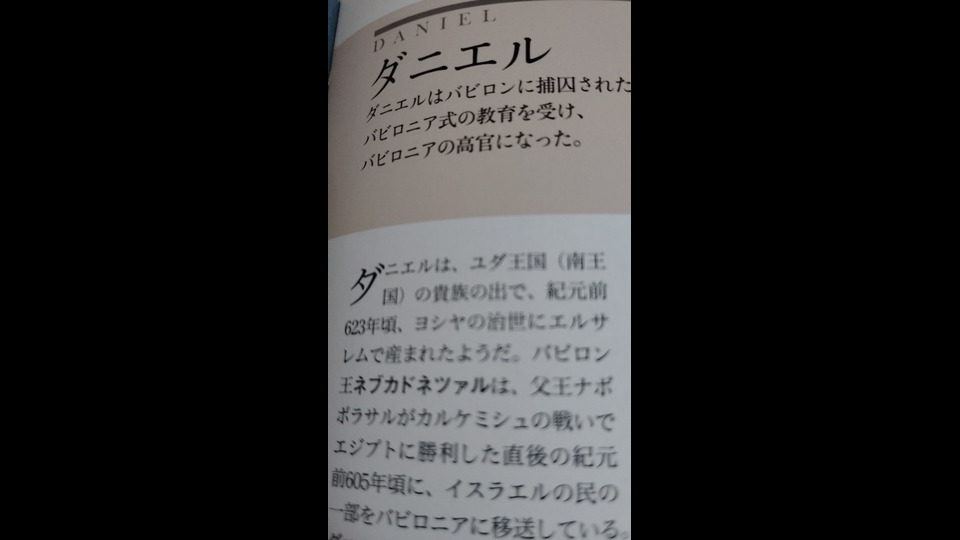 DANIEL
ダニエル
ダニエルはバビロンに捕囚された
バビロニア式の教育を受け、
バビロニアの高官になった。
ダニエルは、ユダ王国（南王
国）の貴族の出で、紀元前
623年頃、ヨシヤの治世にエルサ
レムで産まれたようだ。バビロン
王ネブカドネツァルは、父王ナボ
ポラサルがカルケミシュの戦いで
エジプトに勝利した直後の紀元
前605年頃に、イスラエルの民の
一部をバビロニアに移送している。